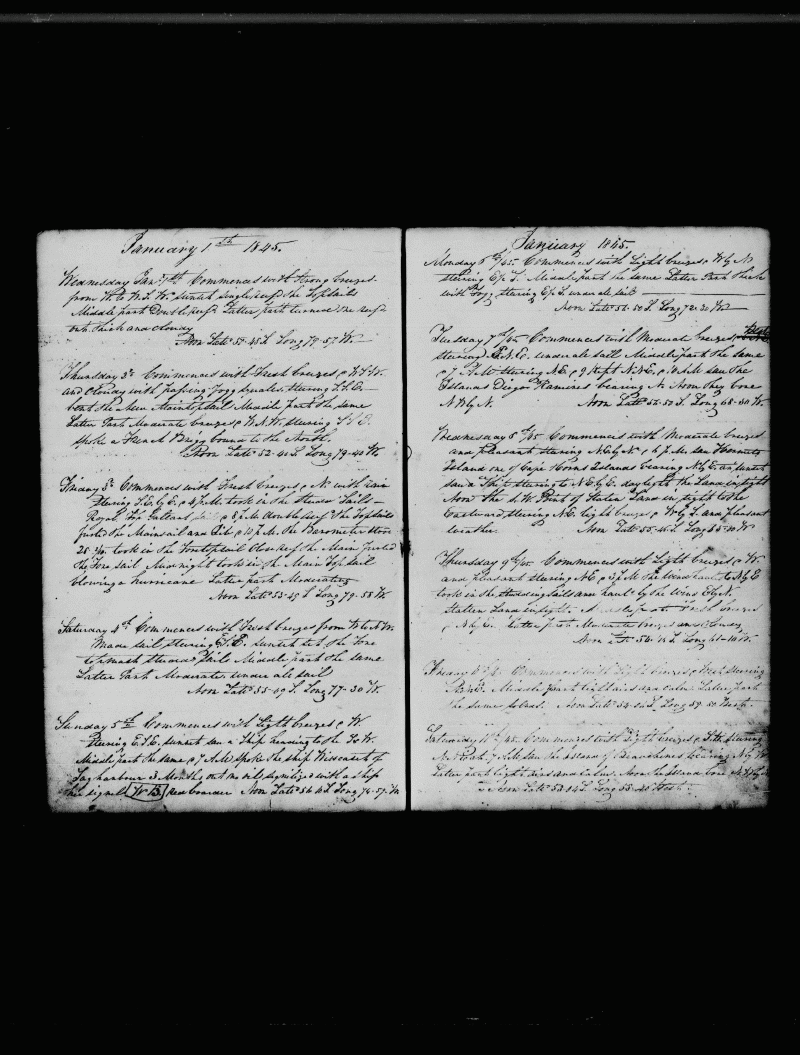 January 1th 1845.
Wednesday Jan 1th Commences with Strong breezes
from W. to W.S.W. sunset single reefd the Topsails
Middle part Doubl reefd Latter part turned the reefs
out thick and cloudy
Noon Latd 50-45 S. Long 79-57 W.
Thursday 2d Commences with Fresh breezes W.S.W.
and cloudy with passing Fogg squales steering S.S.E.
bent the New Maintopsail Middle part the same
Latter Part Moderate breezes W.N.W. steering S.S.E.
spoke a French Brigg bound to the North
Noon Latd 52-41 S Long 79-40 W
Friday 3d Commences with Fresh breezes N. with rain
steering S.E. by E. 4 P.M. took in the Studn Sails
Royal Top Gallant 8 P.M. double reefd the Topsails
furled the Mainsail and Jib 10 P.M. the Barometer
28 took in the Foretopsail close reefd the Main furled
the Fore sail Midnight took in the Main Topsail
blowing a hurricane Latter part Moderating
Noon Latd 53-45 S Long 79-58 W
Saturday 4th Commences with Fresh breezes from W to N.W.
Made sail steering E.S.E. sunset set the Fore
topmast studn Sails Middle part the same
Latter Part Moderate under all sail
Noon Latd 55-09 S. Long 77-30 W.
Sunday 5th Commences with Light breezes W.
steering E.S.E. sunset saw a Ship heading to the W.
Middle part the same 7 A.M. spoke the ship Wiscasset of
Sag harbour 3 Months out no oil signalized with a ship
the signal W B red boarder Noon Latd 56-11 S. Long 74-57 W
January 1845.
Monday 6th/45 Commences with Light breezes W by N
steering E/2 S. Middle part the same Latter Part thick
with Fogg steering E/2 S. under all sail
Noon Latd 56-50 S. Long 72-30 W
Tuesday 7th/45 Commences with Moderate breezes West
steering E.N.E. under all sail Middle part the same
7 A.M. steering N.E. 9 kept N.N.E. 10 A.M. saw the
Islands Diego Ramires bearing N. Noon they bore
N.W. by N. Noon Latd 56-50 S. Long 68-30 W.
Wednesday 8th/45 Commences with Moderate breezes
and pleasant steering N.E. by N. 6 P.M. saw Hermits
Island one of Cape Horns Islands bearing N by E. sunset
saw a Ship steering to N.E. by E. daylight the Land in sight
Noon the S.W. Point of Staten Land in sight to the
Eastward steering N.E. light breezes W by S. and pleasant
weather. Noon Latd 55-41 S. Long 65-10 W
Thursday 9th/45 Commences with Light breezes W.
and pleasant steering N.E. 3 P.M. the wind hauld to N by E
took in the studing sails and hauld by the wind E by N.
Staten Land in sight. Middle part Fresh breezes
N by E. Latter part Moderate breezes and
Noon Latd 54- S. Long 61-10 W.
Friday 10th/45 Commences with Light breezes West steering
N.N.E. Middle part light airs and calm Latter part
the same Noon Latd 54-01 S. Long 59-50 West.
Saturday 11th/45 Commences with Light breezes South steering
N. 7 A.M. saw the Island of Beauchenes bearing N by W
Latter part light airs and calms. Noon the Island bore
Noon Latd 53-14 S. Long 58-40 West.